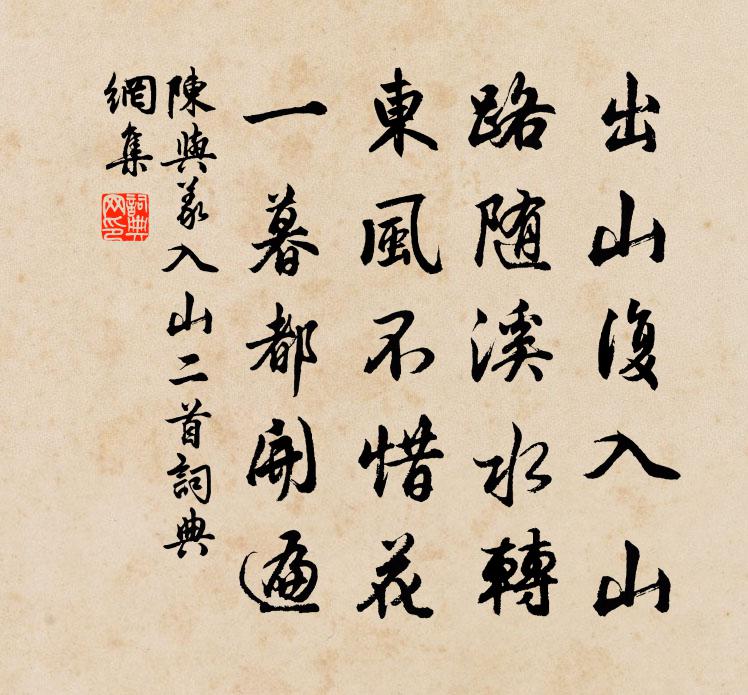 出山復入山
路随溪水轉
東風不惜花
一暮都開遍
陳與義入山二首詞典
網集
詞典
网印